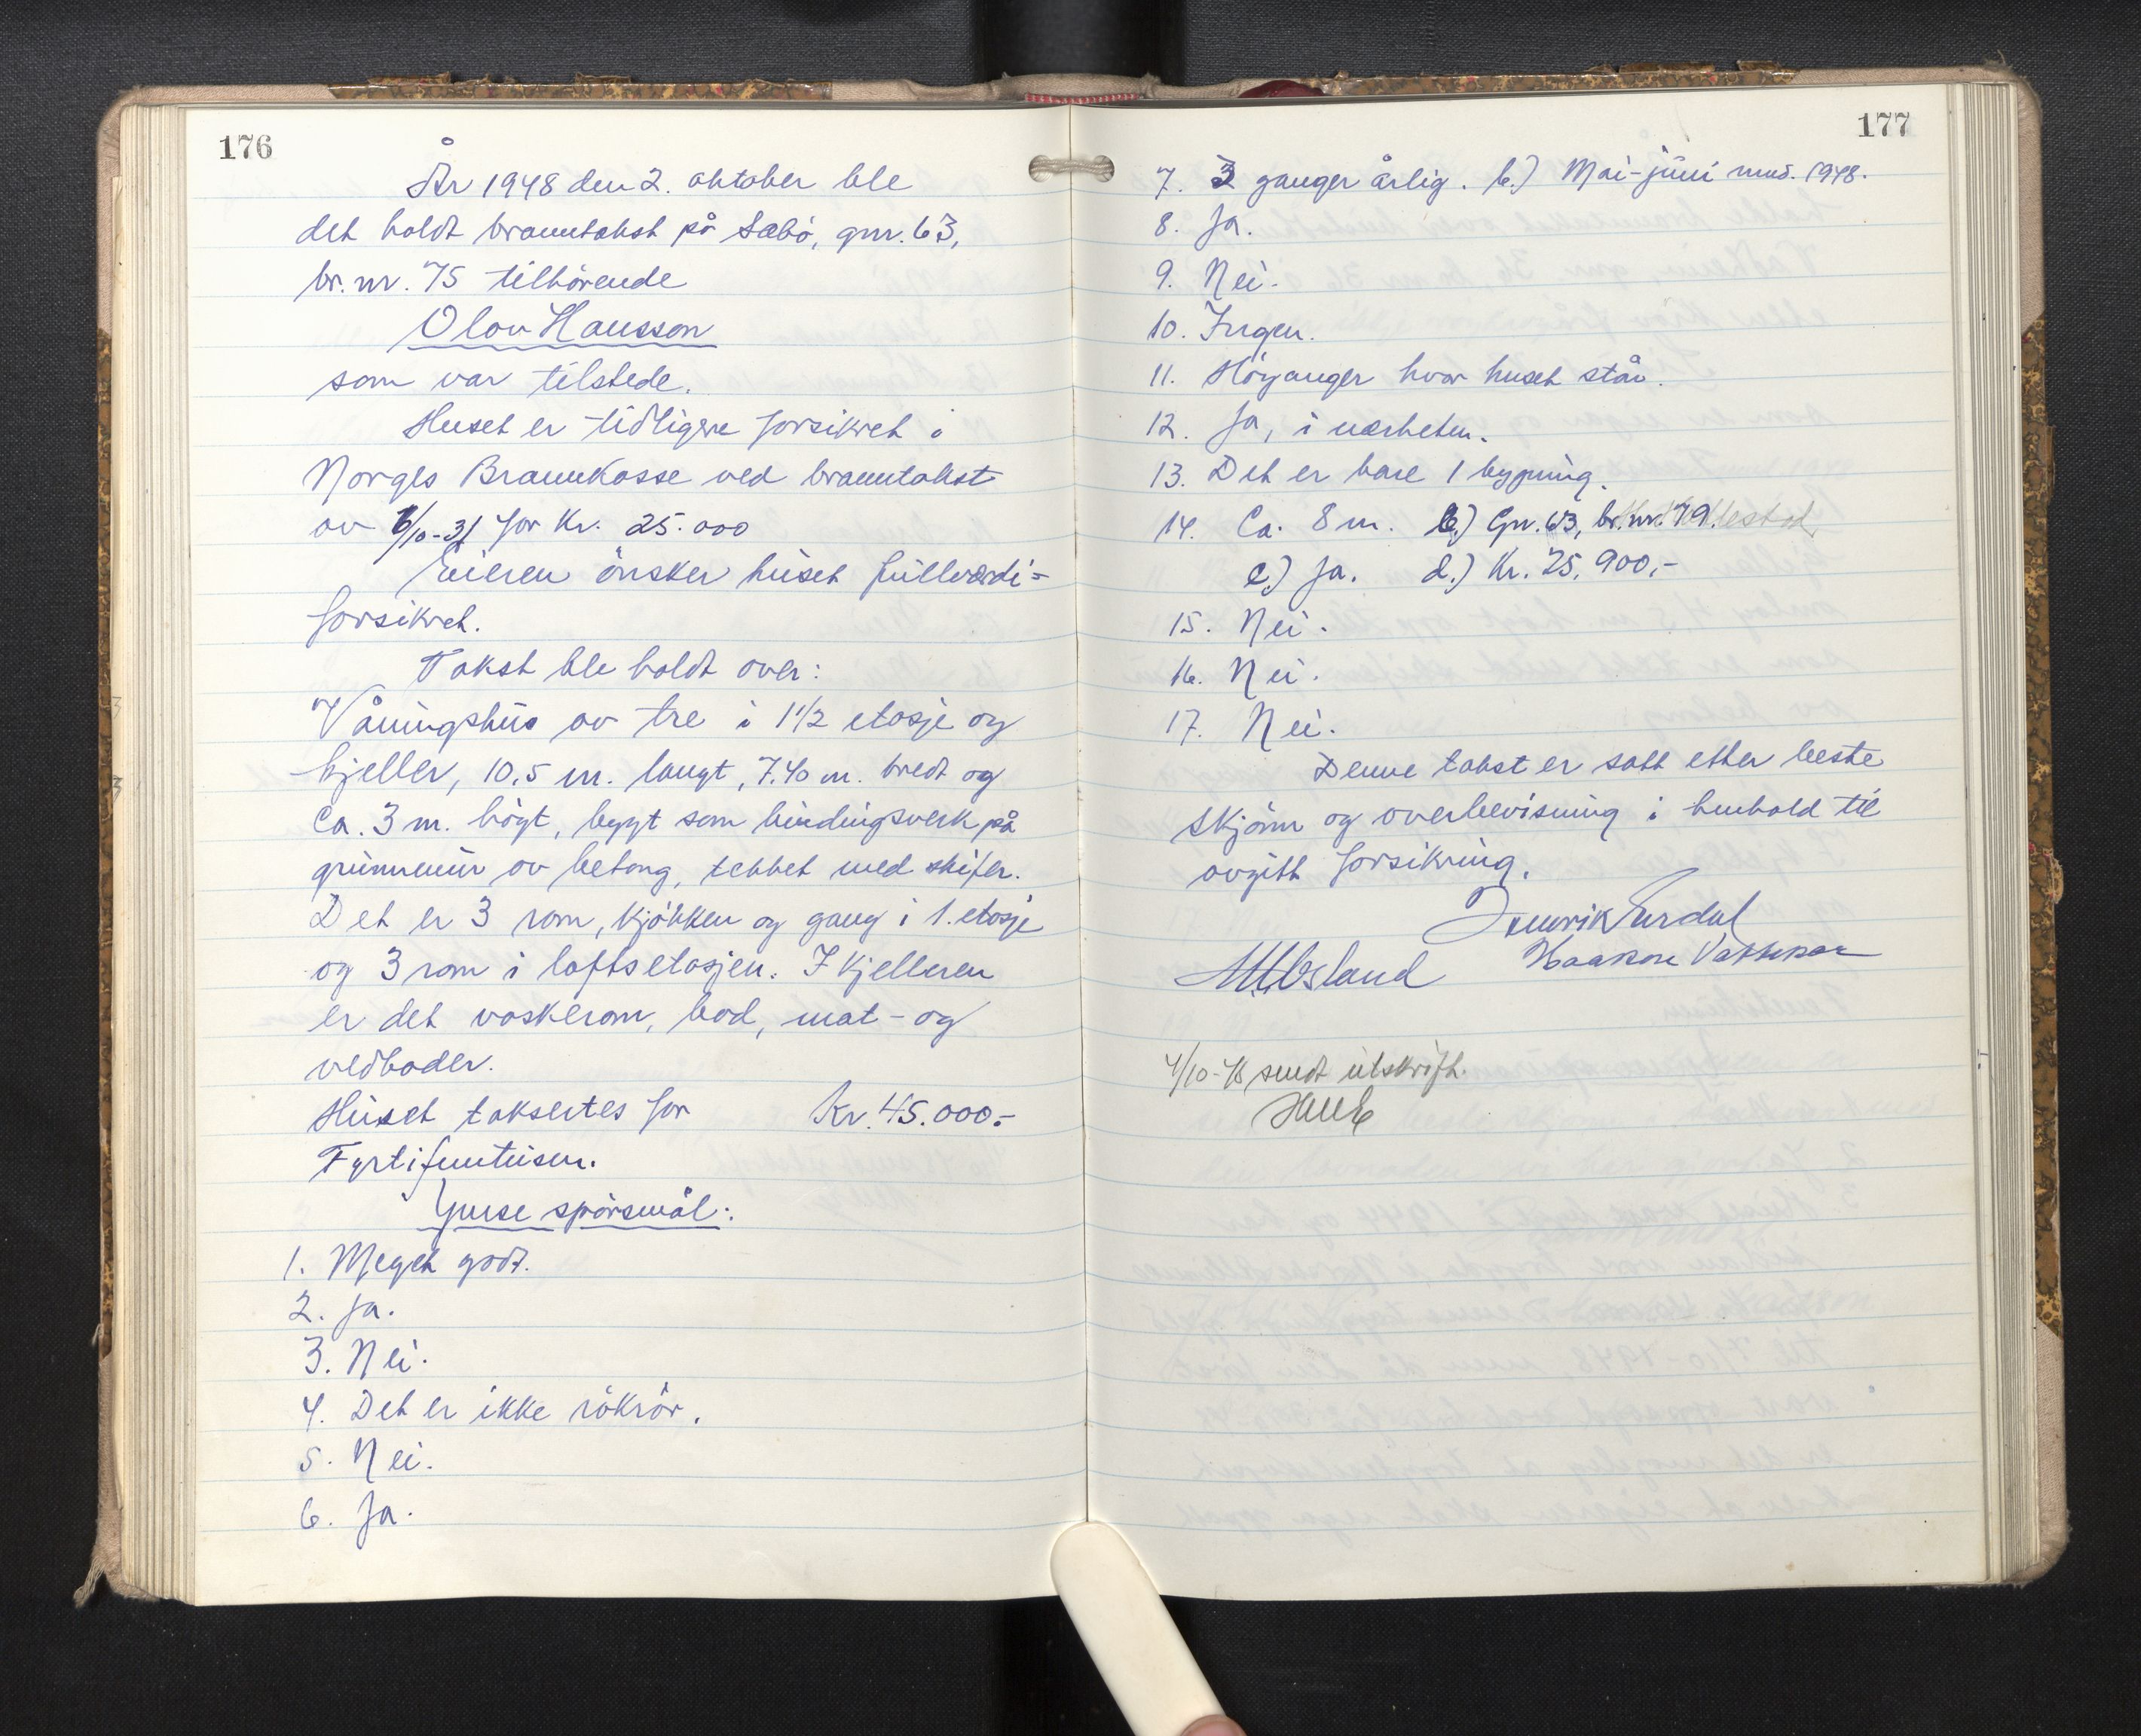 176
År 1948 den 2. oktober ble
det holdt branntakst på Sæbö, gnr. 63,
br.nr. 75 tilhörende
Olav Hansson
som var tilstede.
Huset er tidligere forsikret i
Norges Brannkasse ved branntakst
av 6/10-31 for Kr. 25.000
Eieren önsker huset fullverdi=
forsikret.
Takst ble holdt over:
Våningshus av tre i 1 1/2 etasje og
kjeller, 10,5 m. langt, 7.40 m. bredt og
Ca. 3 m. högt, bygt som bindingsverk på
grunnmur av betong, tekket med skifer.
Det er 3 rom, kjökken og gang i 1. etasje
og 3 rom i loftsetasjen. I kjelleren
er det vaskerom, bod, mat- og
vedboder.
Huset taksertes for Kr. 45.000.-
Fyrtifemtusen.
Ymse spörsmål:
1. Meget godt.
2. Ja.
3. Nei.
4. Det er ikke rökrör.
5. Nei.
6. Ja.
177
7. 3 ganger årlig. b.) Mai-juni mnd. 1948.
8. Ja.
9. Nei.
10. Ingen.
11. Höyanger hvor huset står.
12. Ja, i nærheten.
13. Det er bare 1 bygning.
14. Ca. 8 m. b.) Gnr. 63, br.nr. 79.
c.) Ja. d.) Kr. 25.900,-
15. Nei.
16. Nei.
17. Nei.
Denne takst er satt etter beste
skjönn og overbevisning i henhold til
avgitt forsikring.
Henrik Furdal
Haakon
4/10-48 sendt utskrift.